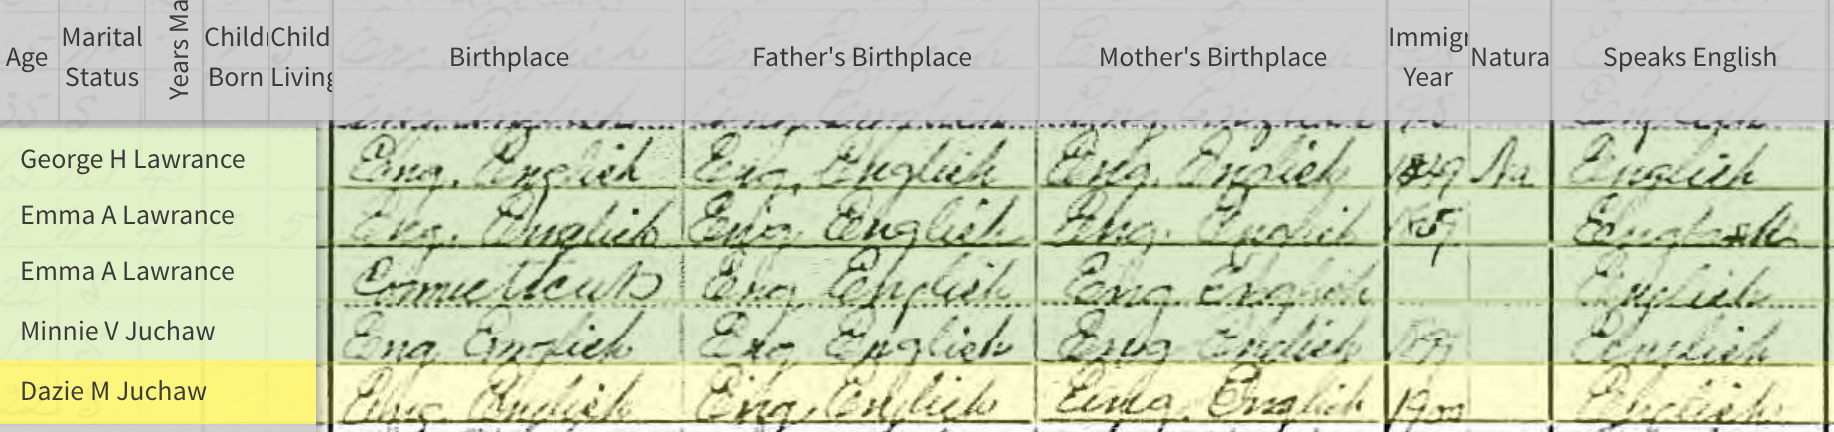 Age Marital Status Years Ma Child Born Child Living Birthplace Father's Birthplace Mother's Birthplace Immigr Year Natura Speaks English
George H Lawrance Eng. English Eng. English Eng. English 1849 Na English
Emma A Lawrance Eng. English Eng. English Eng. English English
Emma A Lawrance Connecticut Eng English Eng English English
Minnie V Juchaw Eng English Eng English Eng English English
Dazie M Juchaw Eng English Eng. English Eng. English 1900 English